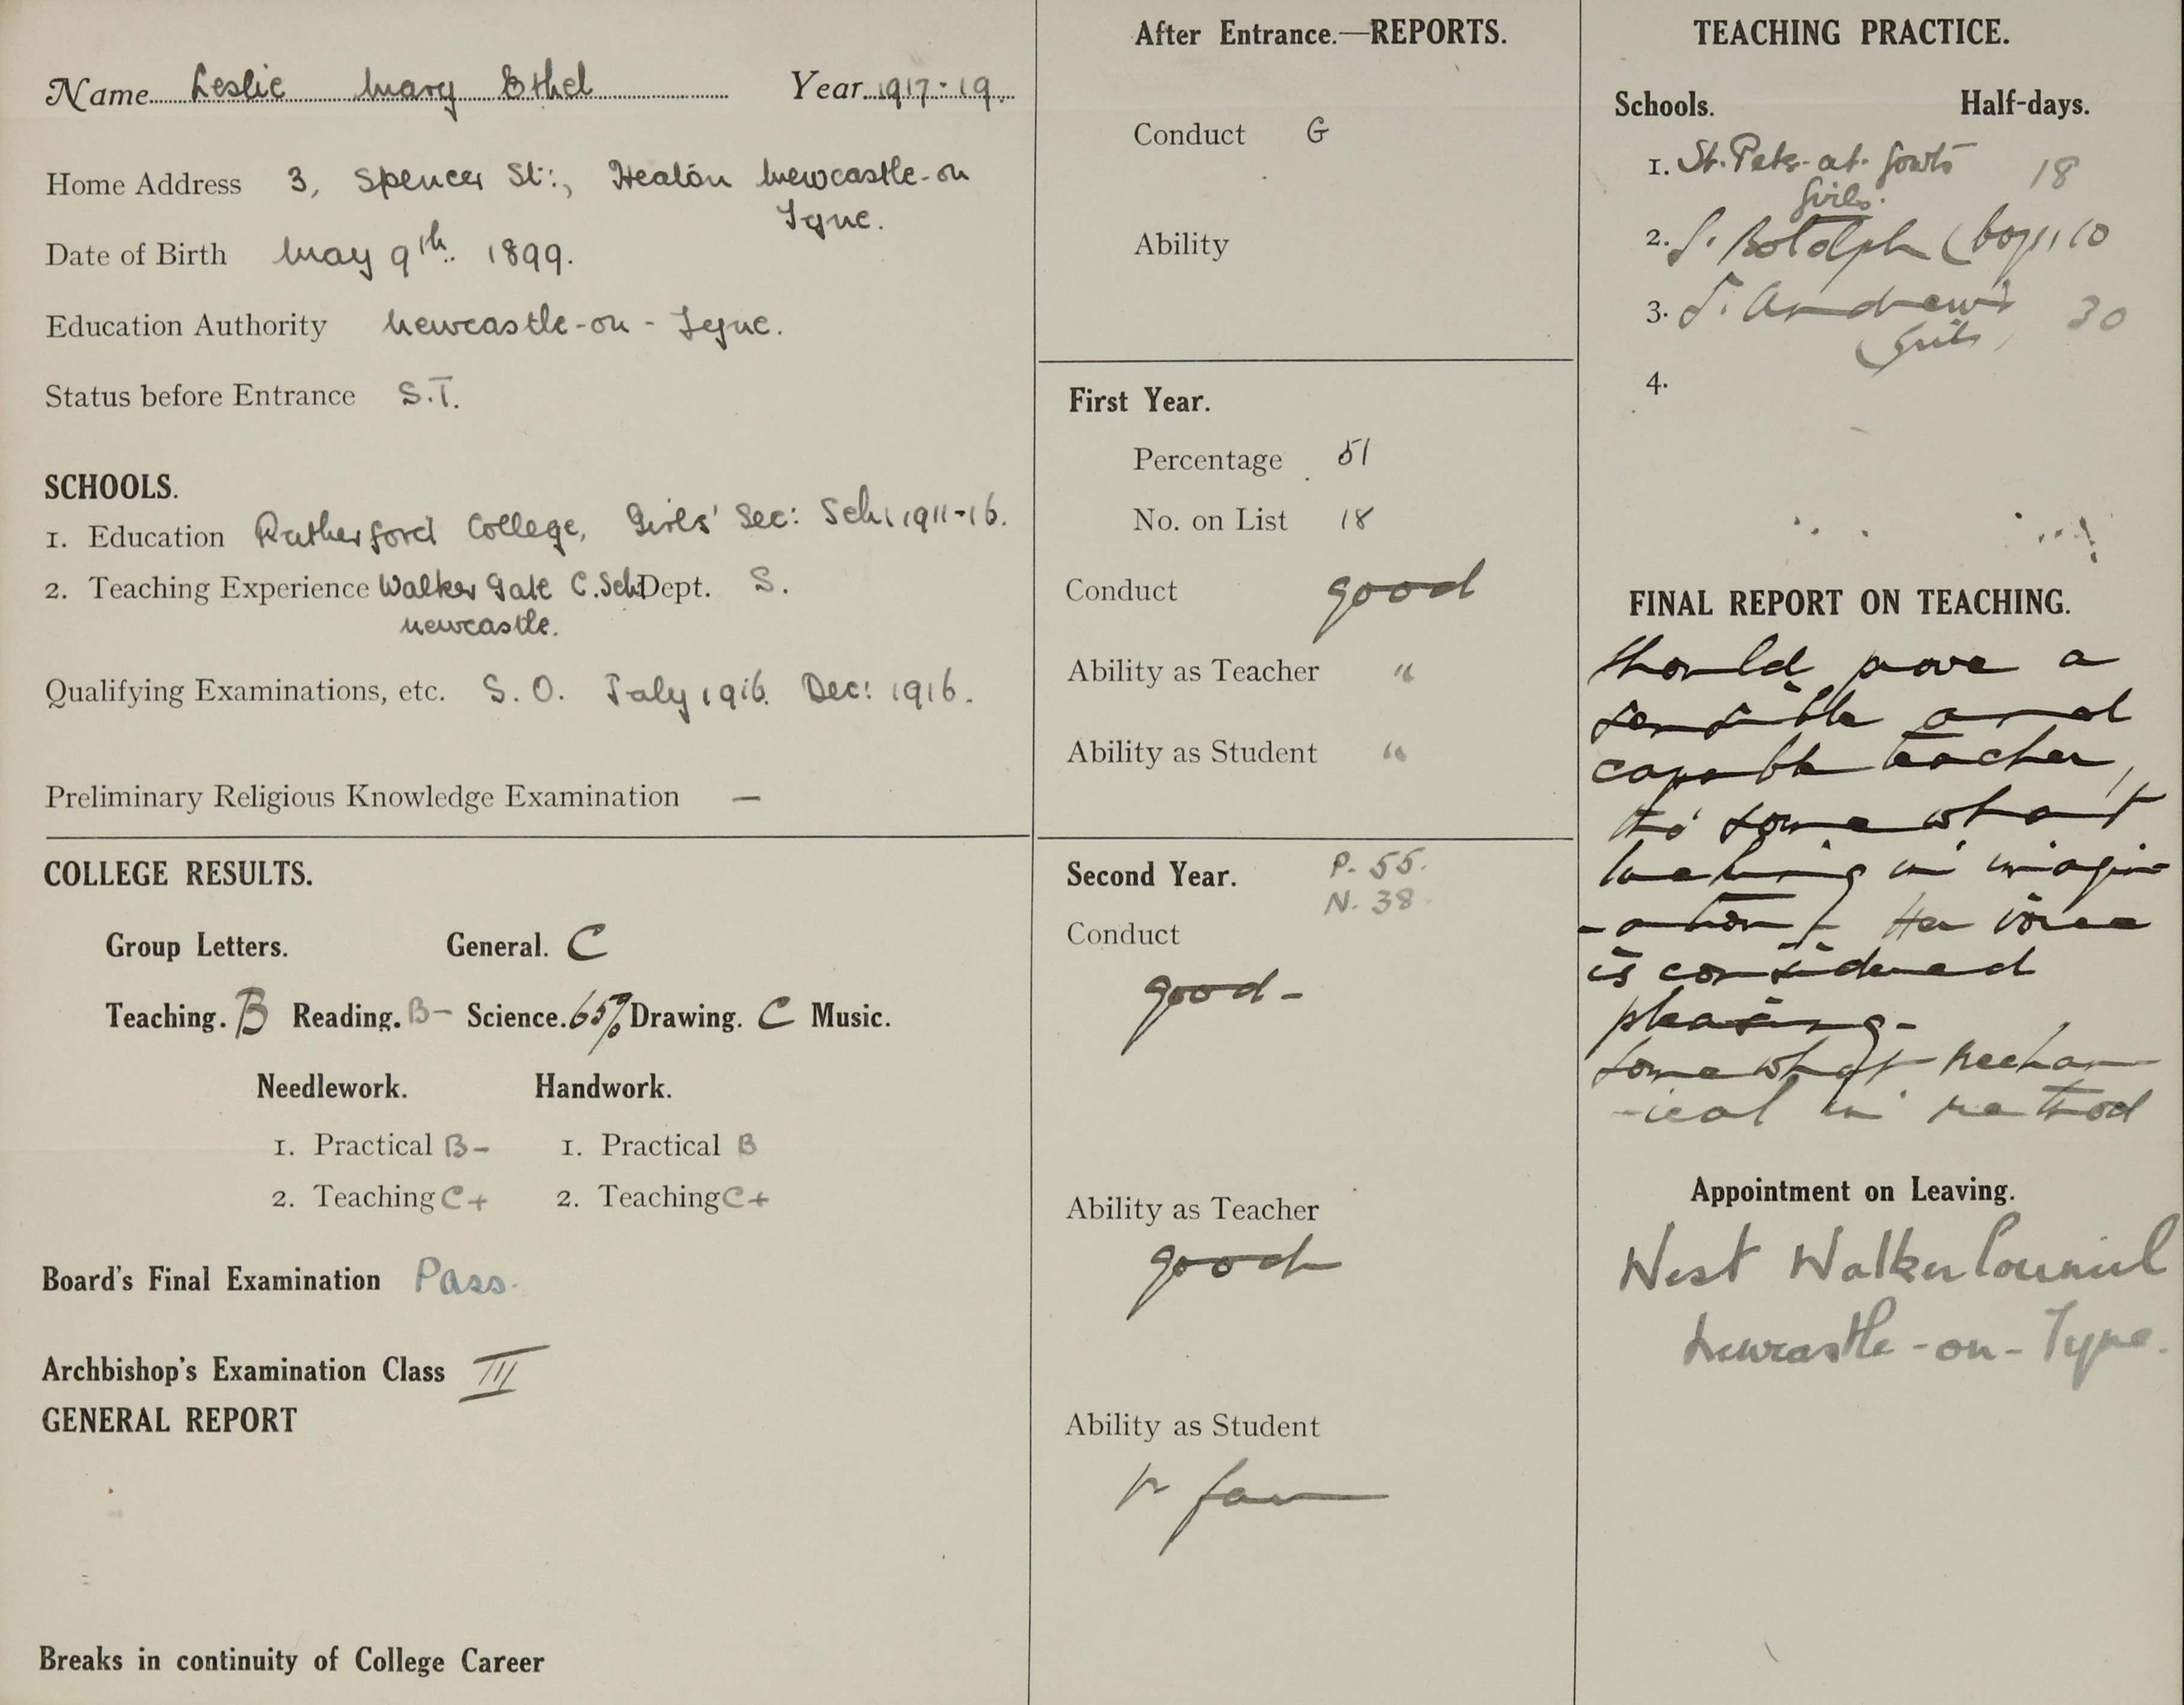 Name Leslie Mary Ethel Year 1917-19.
Home Address 3, Spencer St:, Heaton Newcastle-on
Tyne.
Date of Birth May 9th. 1899.
Education Authority Newcastle-on-Tyne.
Status before Entrance S.T.
SCHOOLS.
1. Education Rutherford College, Girls' Sec: Sch: 1911-16.
2. Teaching Experience Walker Gate C. Sch Dept. S.
Newcastle.
Qualifying Examinations, etc. S. O. July 1916. Dec: 1916.
Preliminary Religious Knowledge Examination —
COLLEGE RESULTS.
Group Letters. General. C
Teaching. B Reading. B- Science. 65% Drawing. C Music.
Needlework. Handwork.
1. Practical B- 1. Practical B
2. Teaching C+ 2. Teaching C+
Board's Final Examination Pass.
Archbishop's Examination Class III
GENERAL REPORT
Breaks in continuity of College Career
After Entrance.—REPORTS.
Conduct G
Ability
First Year.
Percentage 51
No. on List 18
Conduct good
Ability as Teacher "
Ability as Student "
Second Year. P. 55.
N. 38.
Conduct
good-
Ability as Teacher
good
Ability as Student
fair
TEACHING PRACTICE.
Schools. Half-days.
1. St. Peter-at-Gowts 18
Girls.
2. S. Botolph (boys) 10
3. S. Andrew's 30
(Girls)
4.
FINAL REPORT ON TEACHING.
Should prove a
sensible and
capable teacher,
tho' somewhat
lacking in imagin-
-ation. Her voice
is considered
pleasing-
somewhat mechan-
-ical in method
Appointment on Leaving.
West Walker Council
Newcastle-on-Tyne.